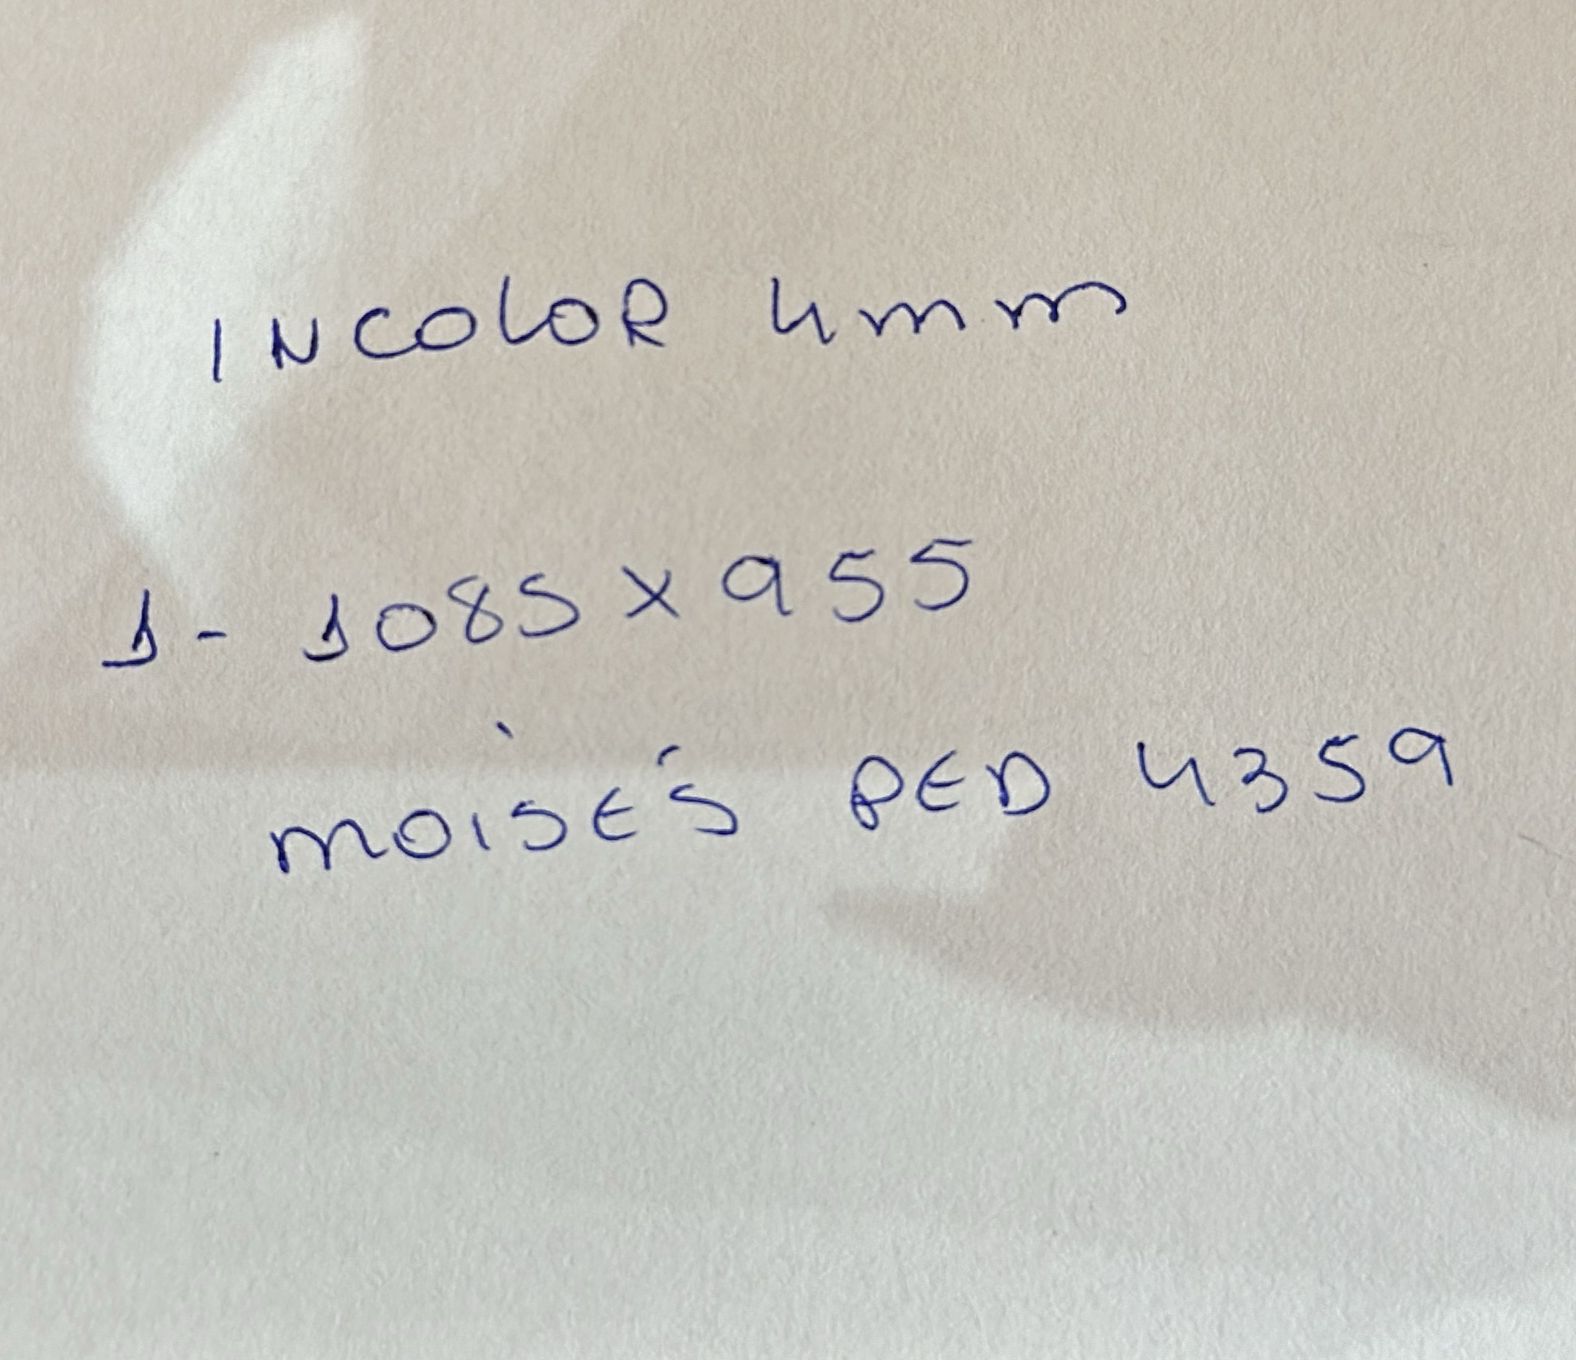 INCOLOR 4mm
1- 1085 x 955
MOISÉS PED 4359